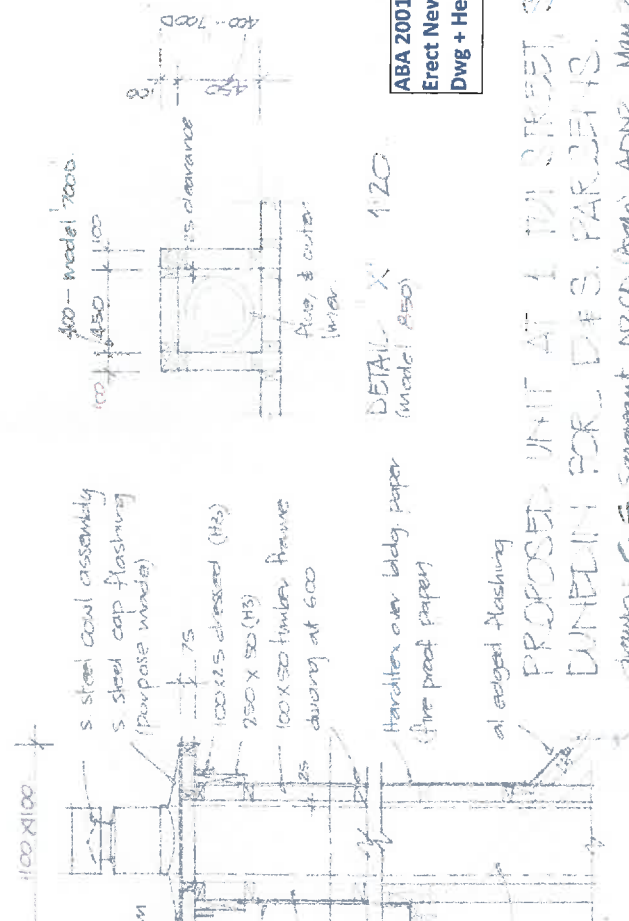 1100 x 1100
s steel cowl assembly
s steel cap flashing
(purpose made)
75
100x25 dressed (H3)
250 x 50 (H3)
100x50 timber frame
dwang at 600
25
Harditex over bldg. paper
(fire proof paper)
al edged flashing
400 - model 700D
100 450 100
400 - 700D
450
25 clearance
flue, & outer
liner
DETAIL 'X' 1:20
(model 850)
ABA 2001
Erect New
Dwg + He
PROPOSED UNIT AT 1 STREET
DUNEDIN FOR D & S PARSENS.